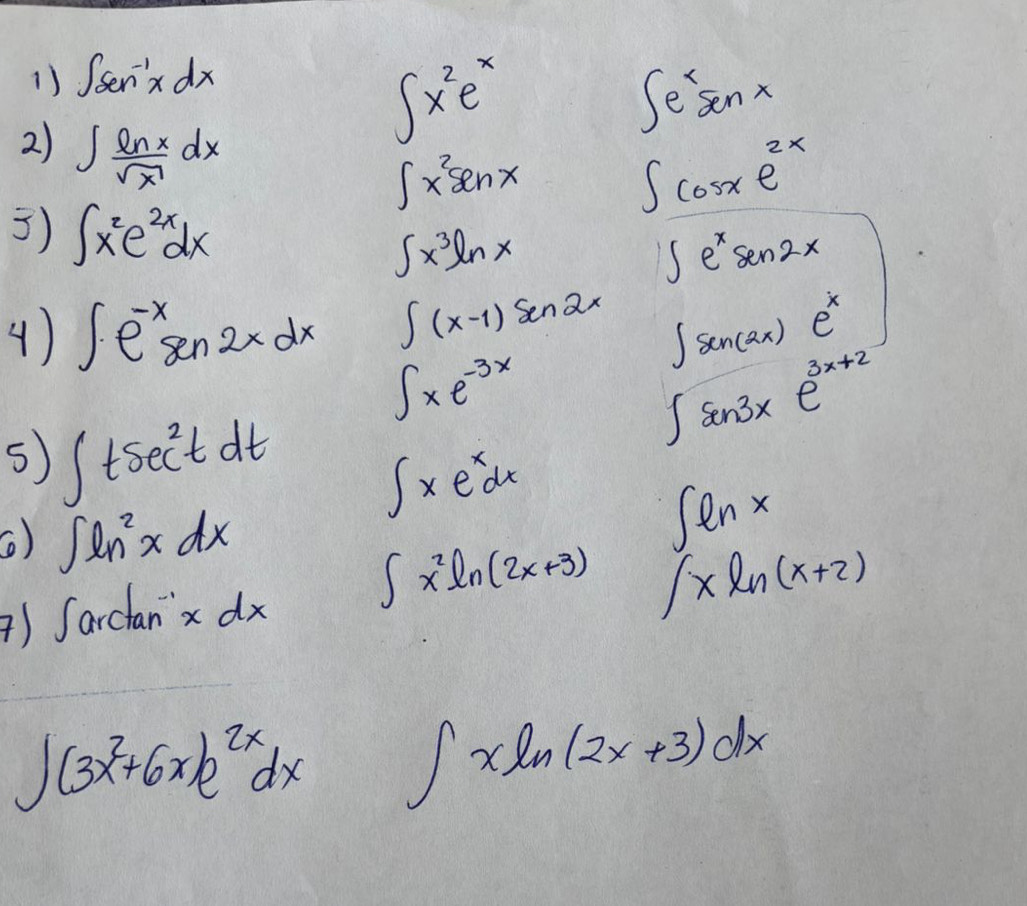 1) ∫sen⁻¹x dx
2) ∫ ln x/√x dx
3) ∫x²e²ˣdx
4) ∫e⁻ˣsen 2x dx
5) ∫ tsec²t dt
6) ∫ln²x dx
7) ∫arctan⁻¹x dx
∫x²eˣ
∫x²senx
∫x³ln x
∫(x-1) sen 2x
∫xe⁻³ˣ
∫x eˣdx
∫x²ln(2x+3)
∫eˣsen x
∫cosx e²ˣ
∫eˣ sen2x
∫sen(2x) eˣ
∫sen3x e³ˣ⁺²
∫ln x
∫x ln(x+2)
∫(3x²+6x)e²ˣdx
∫x ln(2x+3) dx